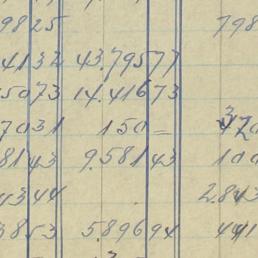 9825 798
4132 43.79577
5073 14.41673
7031 150=
8143 9.58143 100
4344 2.843
3853 5.89694 441